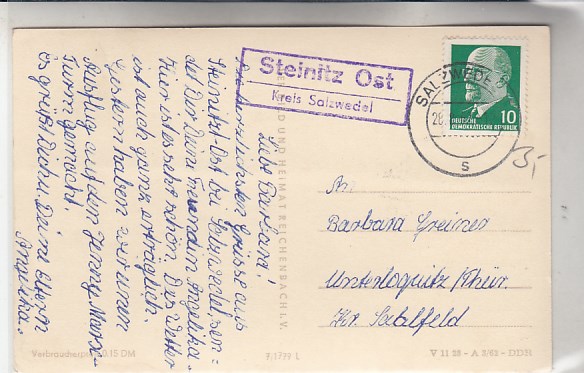 Steinitz Ost
Kreis Salzwedel
SALZWEDEL
28.
S
10
DEUTSCHE
DEMOKRATISCHE REPUBLIK
3,-
Liebe Barbara!
Die herzlichsten Grüsse aus
Steinitz-Ost bei Salzwedel sen-
det Dir Deine Freundin Angelika.
Hier ist es sehr schön. Das Wetter
ist auch ganz erträglich.
Gestern haben wir einen
Ausflug auf den
Turm gemacht.
Es grüßt Dich u. Deine Eltern
Angelika.
An
Barbara Greiner
Unterloquitz/Thür.
Kr. Saalfeld
BILD UND HEIMAT REICHENBACH I. V.
Verbraucherpreis 0,15 DM
V 11 28 - A 3/62 - DDR